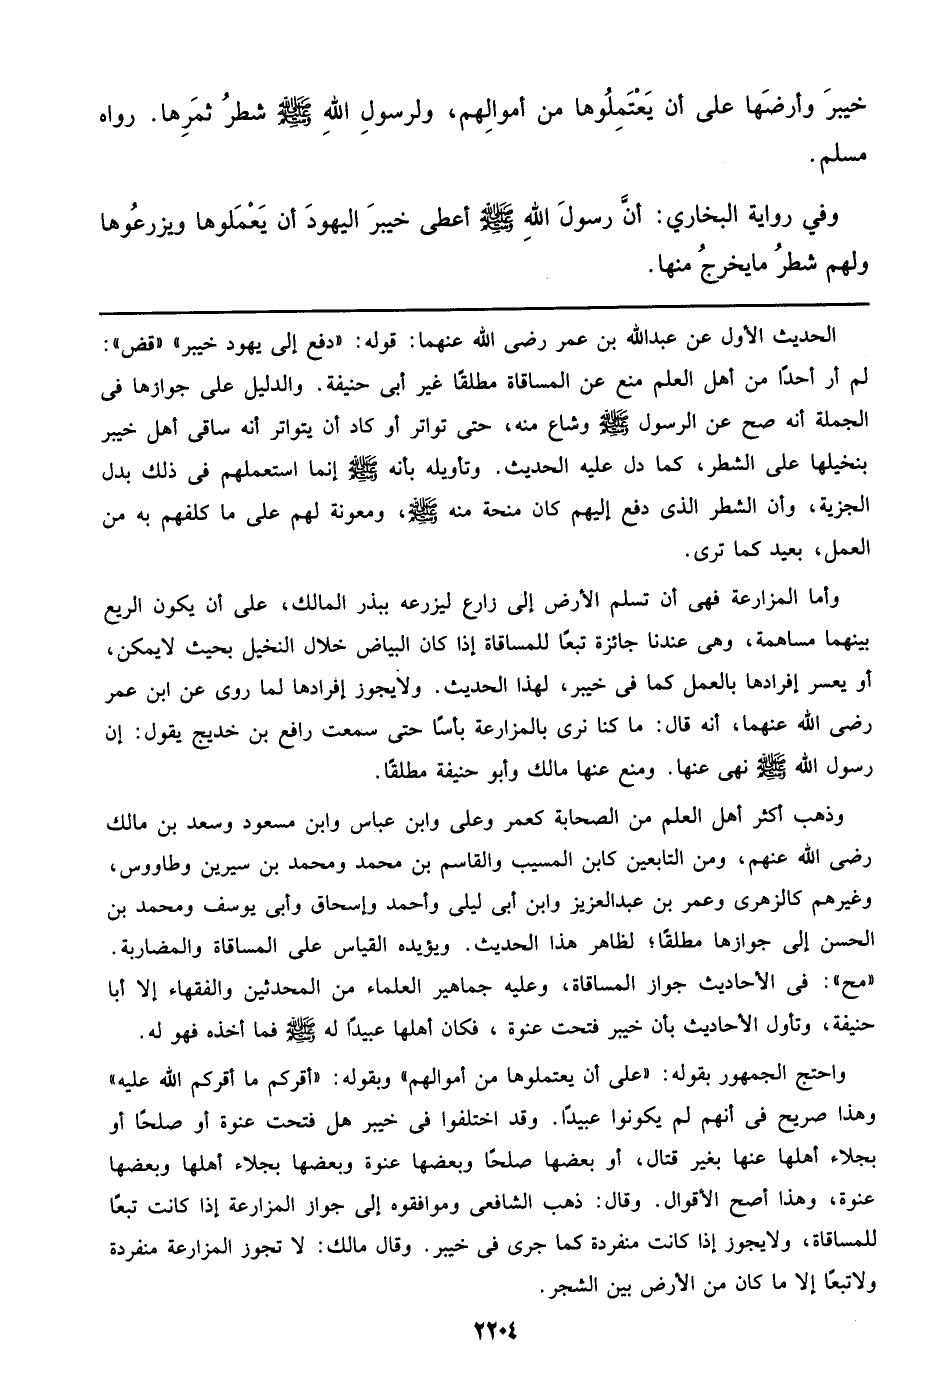 خيبرَ وأرضَها على أن يَعْتَمِلُوها من أموالِهم، ولرسولِ اللهِ ﷺ شطرُ ثمَرِها. رواه
مسلم.
وفي رواية البخاري: أنَّ رسولَ اللهِ ﷺ أعطى خيبرَ اليهودَ أن يَعْمَلوها ويزرعُوها
ولهم شطرُ مايخرجُ منها.
الحديث الأول عن عبدالله بن عمر رضى الله عنهما: قوله: «دفع إلى يهود خيبر» «قض»:
لم أر أحدًا من أهل العلم منع عن المساقاة مطلقًا غير أبى حنيفة. والدليل على جوازها فى
الجملة أنه صح عن الرسول ﷺ وشاع منه، حتى تواتر أو كاد أن يتواتر أنه ساقى أهل خيبر
بنخيلها على الشطر، كما دل عليه الحديث. وتأويله بأنه ﷺ إنما استعملهم فى ذلك بدل
الجزية، وأن الشطر الذى دفع إليهم كان منحة منه ﷺ، ومعونة لهم على ما كلفهم به من
العمل، بعيد كما ترى.
وأما المزارعة فهى أن تسلم الأرض إلى زارع ليزرعه ببذر المالك، على أن يكون الريع
بينهما مساهمة، وهى عندنا جائزة تبعًا للمساقاة إذا كان البياض خلال النخيل بحيث لايمكن،
أو يعسر إفرادها بالعمل كما فى خيبر، لهذا الحديث. ولايجوز إفرادها لما روى عن ابن عمر
رضى الله عنهما، أنه قال: ما كنا نرى بالمزارعة بأسًا حتى سمعت رافع بن خديج يقول: إن
رسول الله ﷺ نهى عنها. ومنع عنها مالك وأبو حنيفة مطلقًا.
وذهب أكثر أهل العلم من الصحابة كعمر وعلى وابن عباس وابن مسعود وسعد بن مالك
رضى الله عنهم، ومن التابعين كابن المسيب والقاسم بن محمد ومحمد بن سيرين وطاووس،
وغيرهم كالزهرى وعمر بن عبدالعزيز وابن أبى ليلى وأحمد وإسحاق وأبى يوسف ومحمد بن
الحسن إلى جوازها مطلقًا؛ لظاهر هذا الحديث. ويؤيده القياس على المساقاة والمضاربة.
«مح»: فى الأحاديث جواز المساقاة، وعليه جماهير العلماء من المحدثين والفقهاء إلا أبا
حنيفة، وتأول الأحاديث بأن خيبر فتحت عنوة ، فكان أهلها عبيدًا له ﷺ فما أخذه فهو له.
واحتج الجمهور بقوله: «على أن يعتملوها من أموالهم» وبقوله: «أقركم ما أقركم الله عليه»
وهذا صريح فى أنهم لم يكونوا عبيدًا. وقد اختلفوا فى خيبر هل فتحت عنوة أو صلحًا أو
بجلاء أهلها عنها بغير قتال، أو بعضها صلحًا وبعضها عنوة وبعضها بجلاء أهلها وبعضها
عنوة، وهذا أصح الأقوال. وقال: ذهب الشافعى وموافقوه إلى جواز المزارعة إذا كانت تبعًا
للمساقاة، ولايجوز إذا كانت منفردة كما جرى فى خيبر. وقال مالك: لا تجوز المزارعة منفردة
ولاتبعًا إلا ما كان من الأرض بين الشجر.
٢٢٠٤